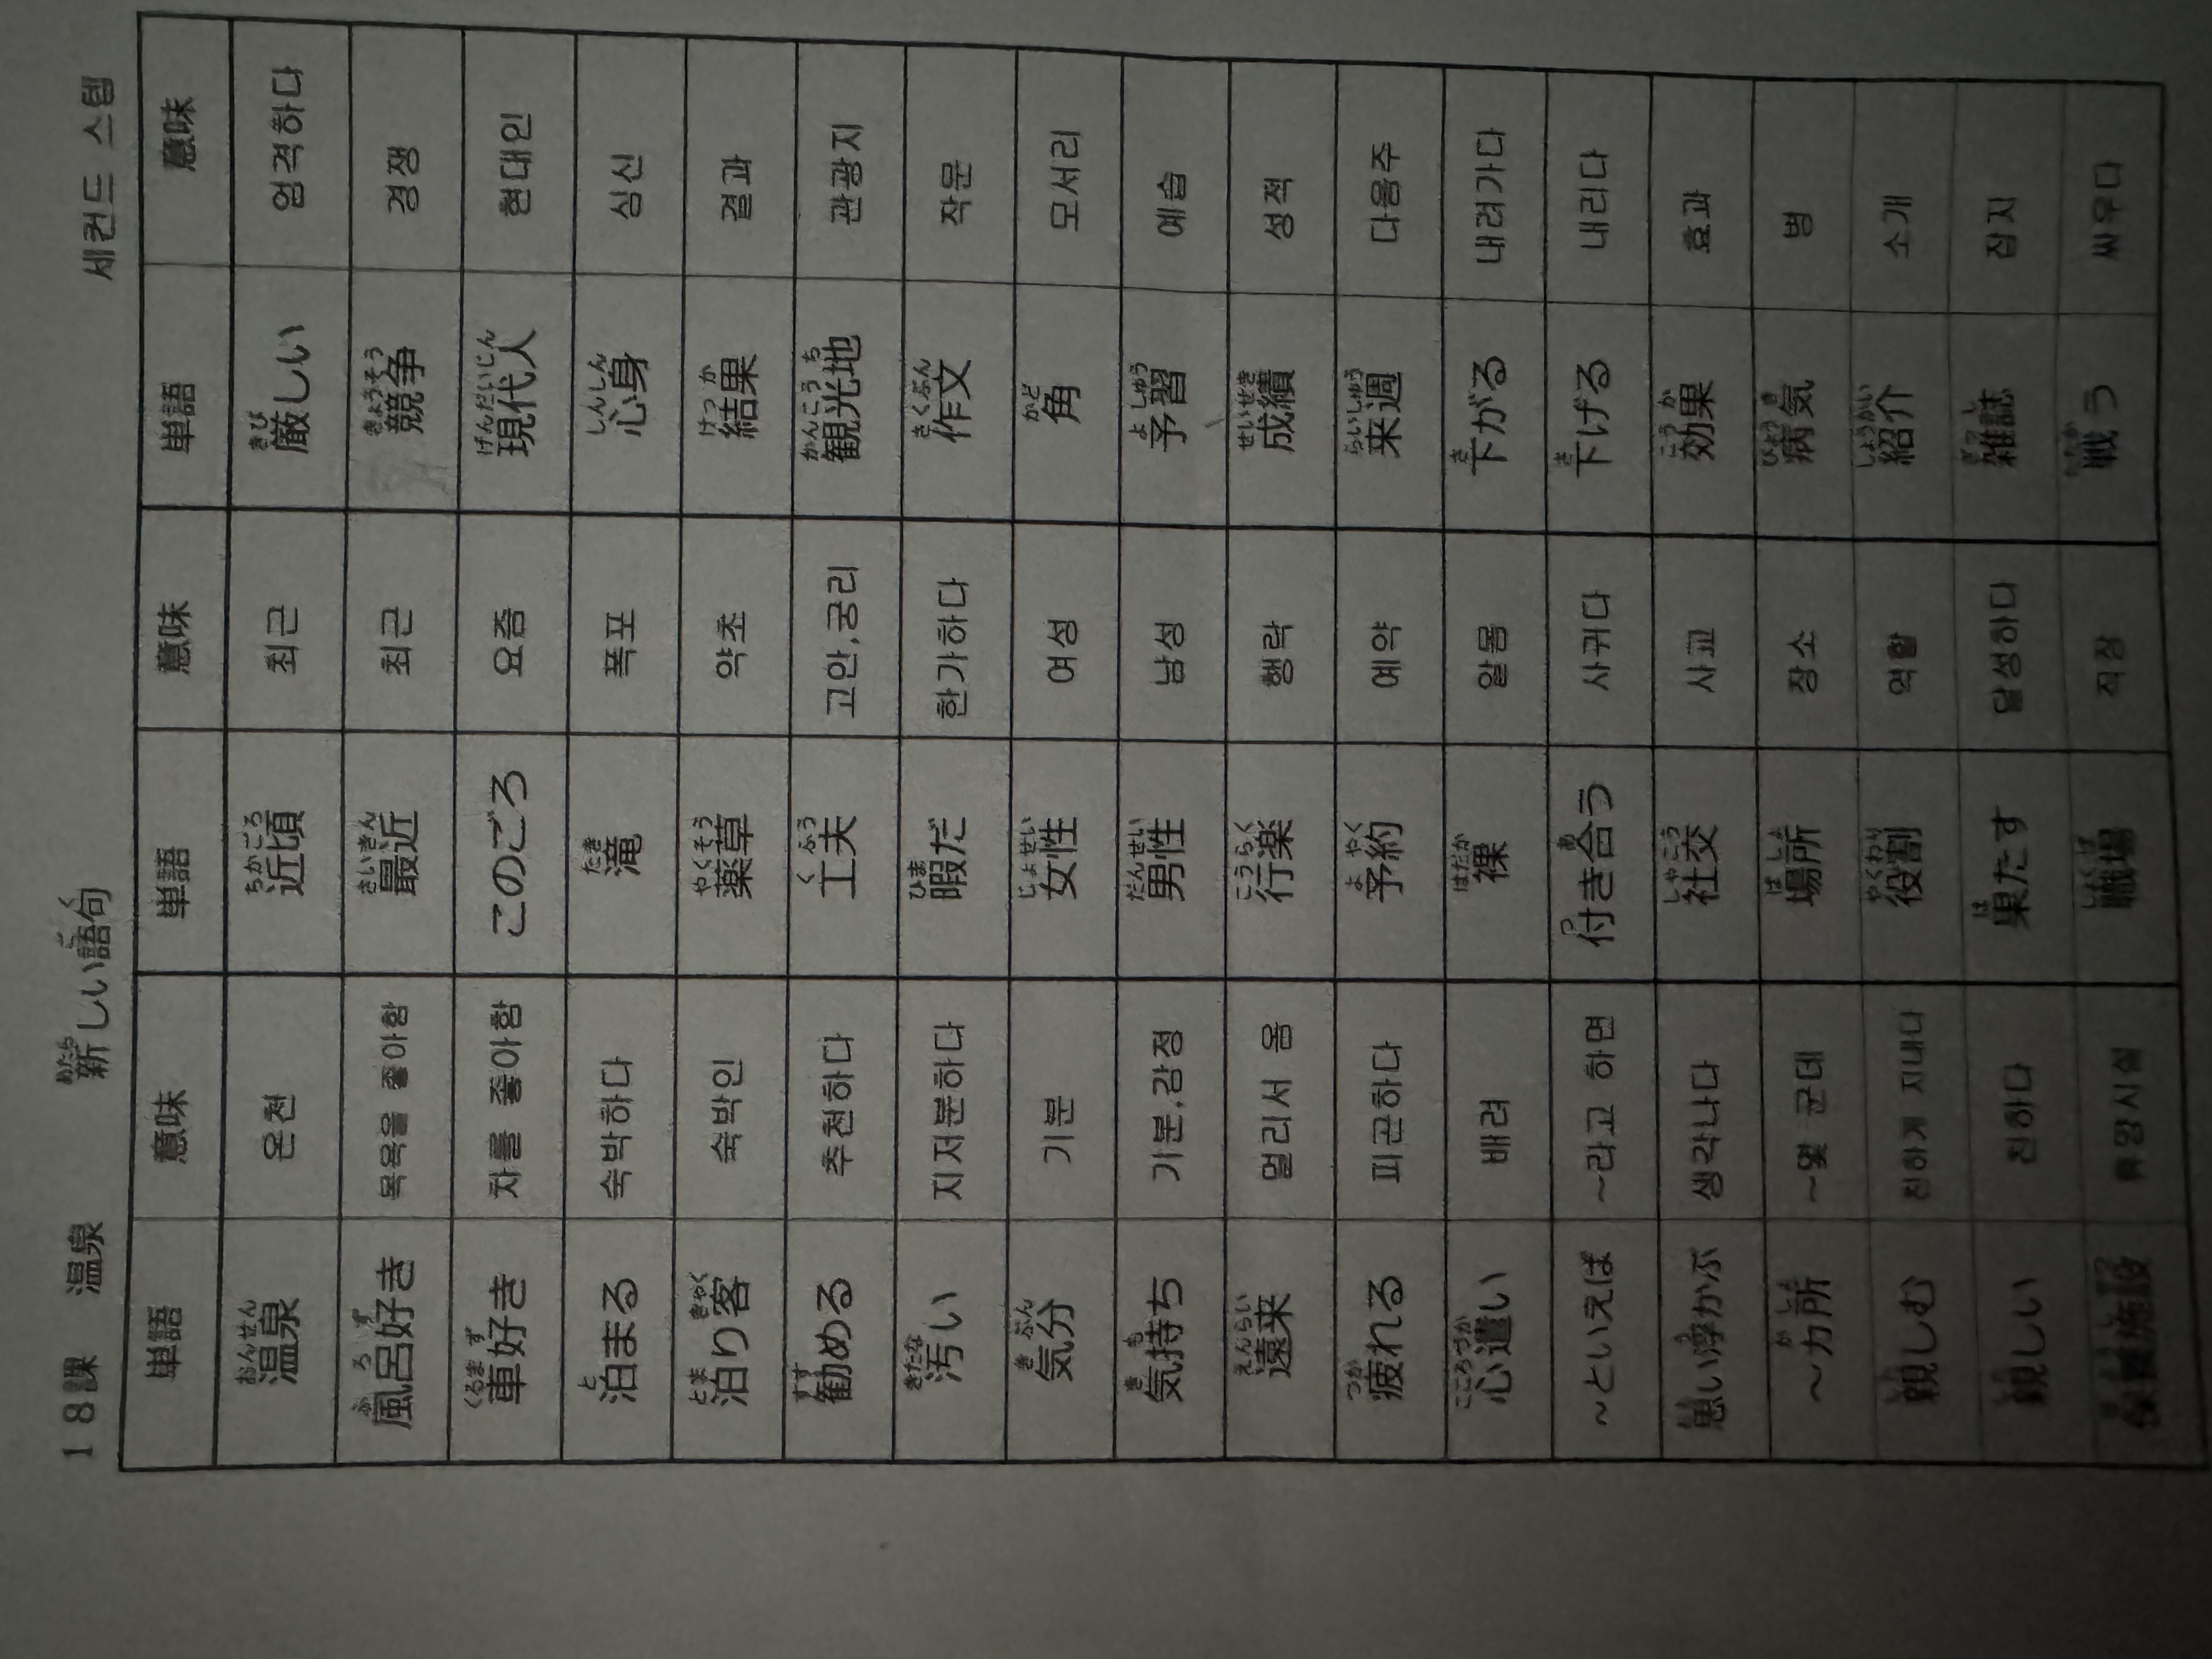 18課 温泉 新しい語句 세컨드 스텝
単語 意味 単語 意味 単語 意味
温泉 온천 近頃 최근 厳しい 엄격하다
風呂好き 목욕을 좋아함 最近 최근 競争 경쟁
車好き 차를 좋아함 このごろ 요즘 現代人 현대인
泊まる 숙박하다 滝 폭포 心身 심신
泊り客 숙박인 薬草 약초 結果 결과
勧める 추천하다 工夫 고안,궁리 観光地 관광지
汚い 지저분하다 暇だ 한가하다 作文 작문
気分 기분 女性 여성 角 모서리
気持ち 기분,감정 男性 남성 予習 예습
遠来 멀리서 옴 行楽 행락 成績 성적
疲れる 피곤하다 予約 예약 来週 다음주
心遣い 배려 裸 알몸 下がる 내려가다
~といえば ~라고 하면 付き合う 사귀다 下げる 내리다
思い浮かぶ 생각나다 社交 사교 効果 효과
~カ所 ~몇 군데 場所 장소 病気 병
親しむ 친하게 지내다 役割 역할 紹介 소개
親しい 친하다 果たす 달성하다 雑誌 잡지
保養施設 휴양시설 職場 직장 戦う 싸우다